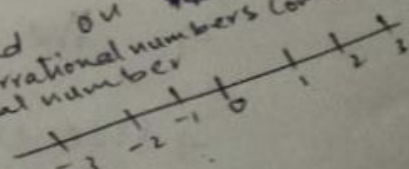 d on
rrational numbers (o
al number
-3 -2 -1 0 1 2 3